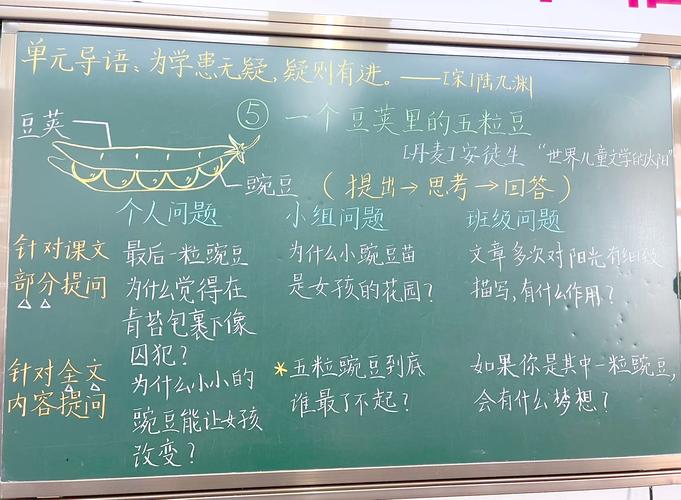 单元导语：为学患无疑，疑则有进。——[宋]陆九渊
豆荚
⑤ 一个豆荚里的五粒豆
[丹麦]安徒生 “世界儿童文学的太阳”
豌豆 (提出→思考→回答)
个人问题 小组问题 班级问题
针对课文
部分提问
最后一粒豌豆
为什么觉得在
青苔包裹下像
囚犯？
为什么小豌豆苗
是女孩的花园？
文章多次对阳光有细致
描写，有什么作用？
针对全文
内容提问
为什么小小的
豌豆能让女孩
改变？
*五粒豌豆到底
谁最了不起？
如果你是其中一粒豌豆，
会有什么梦想？